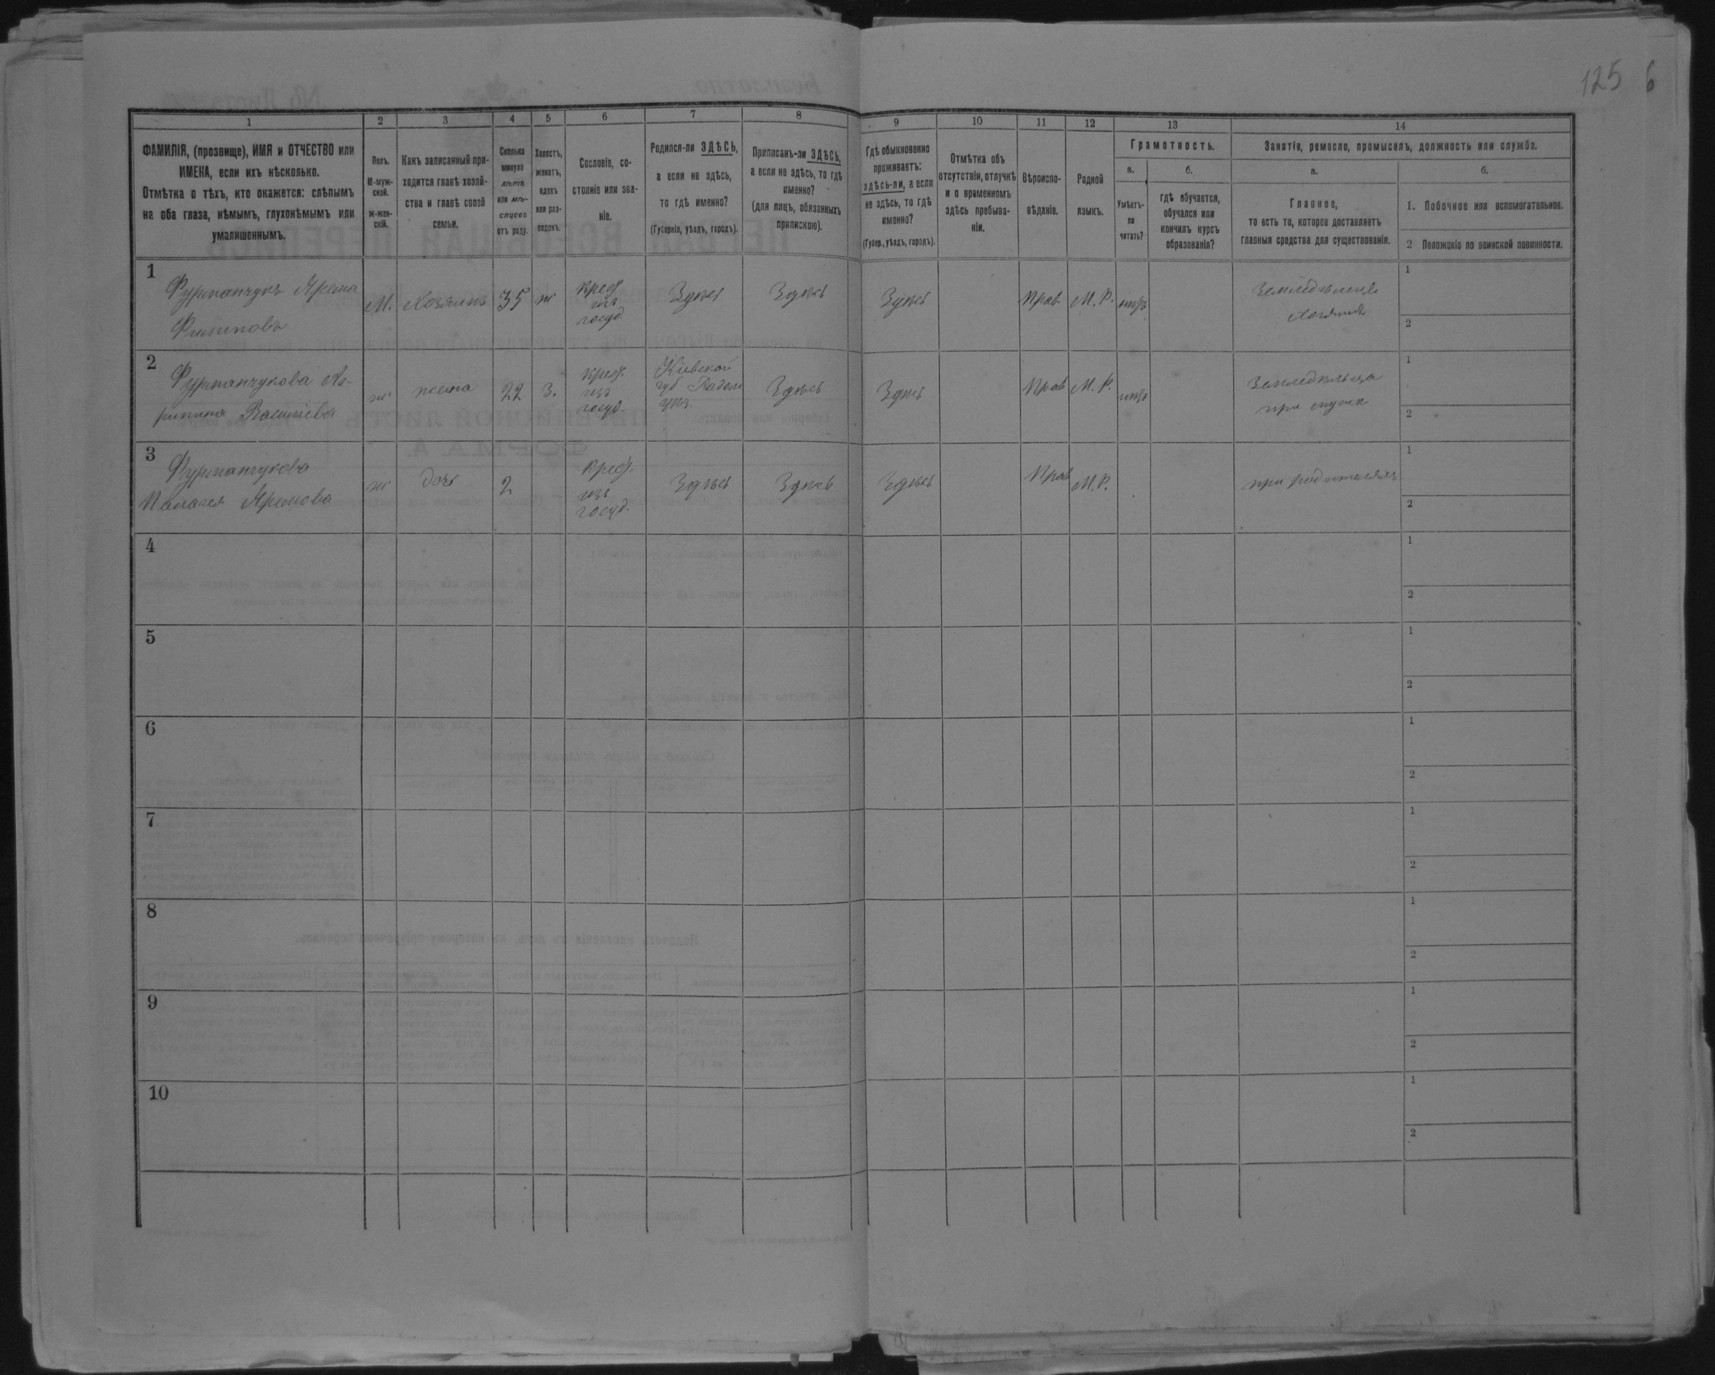 125 6
1 2 3 4 5 6 7 8 9 10 11 12 13 14
ФАМИЛІЯ, (прозвище), ИМЯ и ОТЧЕСТВО или
ИМЕНА, если ихъ нѣсколько.
Отмѣтка о тѣхъ, кто окажется: слѣпымъ
на оба глаза, нѣмымъ, глухонѣмымъ или
умалишеннымъ.
Полъ.
М-муж-
ской.
Ж-жен-
скій.
Какъ записанный при-
ходится главѣ хозяй-
ства и главѣ своей
семьи.
Сколько
минуло
лѣтъ
или мѣ-
сяцевъ
отъ роду.
Холостъ,
женатъ,
вдовъ
или раз-
веденъ.
Сословіе, со-
стояніе или зва-
ніе.
Родился-ли ЗДѢСЬ,
а если не здѣсь,
то гдѣ именно?
(Губернія, уѣздъ, городъ).
Приписанъ-ли ЗДѢСЬ,
а если не здѣсь, то гдѣ
именно?
(для лицъ, обязанныхъ
припискою).
Гдѣ обыкновенно
проживаетъ:
здѣсь-ли, а если
не здѣсь, то гдѣ
именно?
(Губер., уѣздъ, городъ).
Отмѣтка объ
отсутствіи, отлучкѣ
и о временномъ
здѣсь пребыва-
ніи.
Вѣроиспо-
вѣданіе.
Родной
языкъ.
Грамотность.
а.
Умѣетъ-
ли
читать?
б.
гдѣ обучается,
обучался или
кончилъ курсъ
образованія?
Занятія, ремесло, промыселъ, должность или служба.
а.
Главное,
то есть то, которое доставляетъ
главныя средства для существованія.
б.
1. Побочное или вспомогательное.
2 Положеніе по воинской повинности.
1
Фурманчукъ Ярема
Филиповъ
М. Хозяинъ 35 ж
Крест.
изъ
госуд.
Здѣсь Здѣсь Здѣсь Прав. М. Р. нѣтъ
Земледѣлецъ
хозяинъ
1
2
2
Фурманчукова
Васильева
ж жена 22 З.
Крест.
изъ
госуд.
Кіевской
губ. Радом.
уѣз.
Здѣсь Здѣсь Прав. М. Р. нѣтъ
Земледѣлица
при мужѣ
1
2
3
Фурманчукова
Палагея Яремова
ж дочь 2
Крест.
изъ
госуд.
Здѣсь Здѣсь Здѣсь Прав. М. Р.
при родителяхъ
1
2
4
1
2
5
1
2
6
1
2
7
1
2
8
1
2
9
1
2
10
1
2